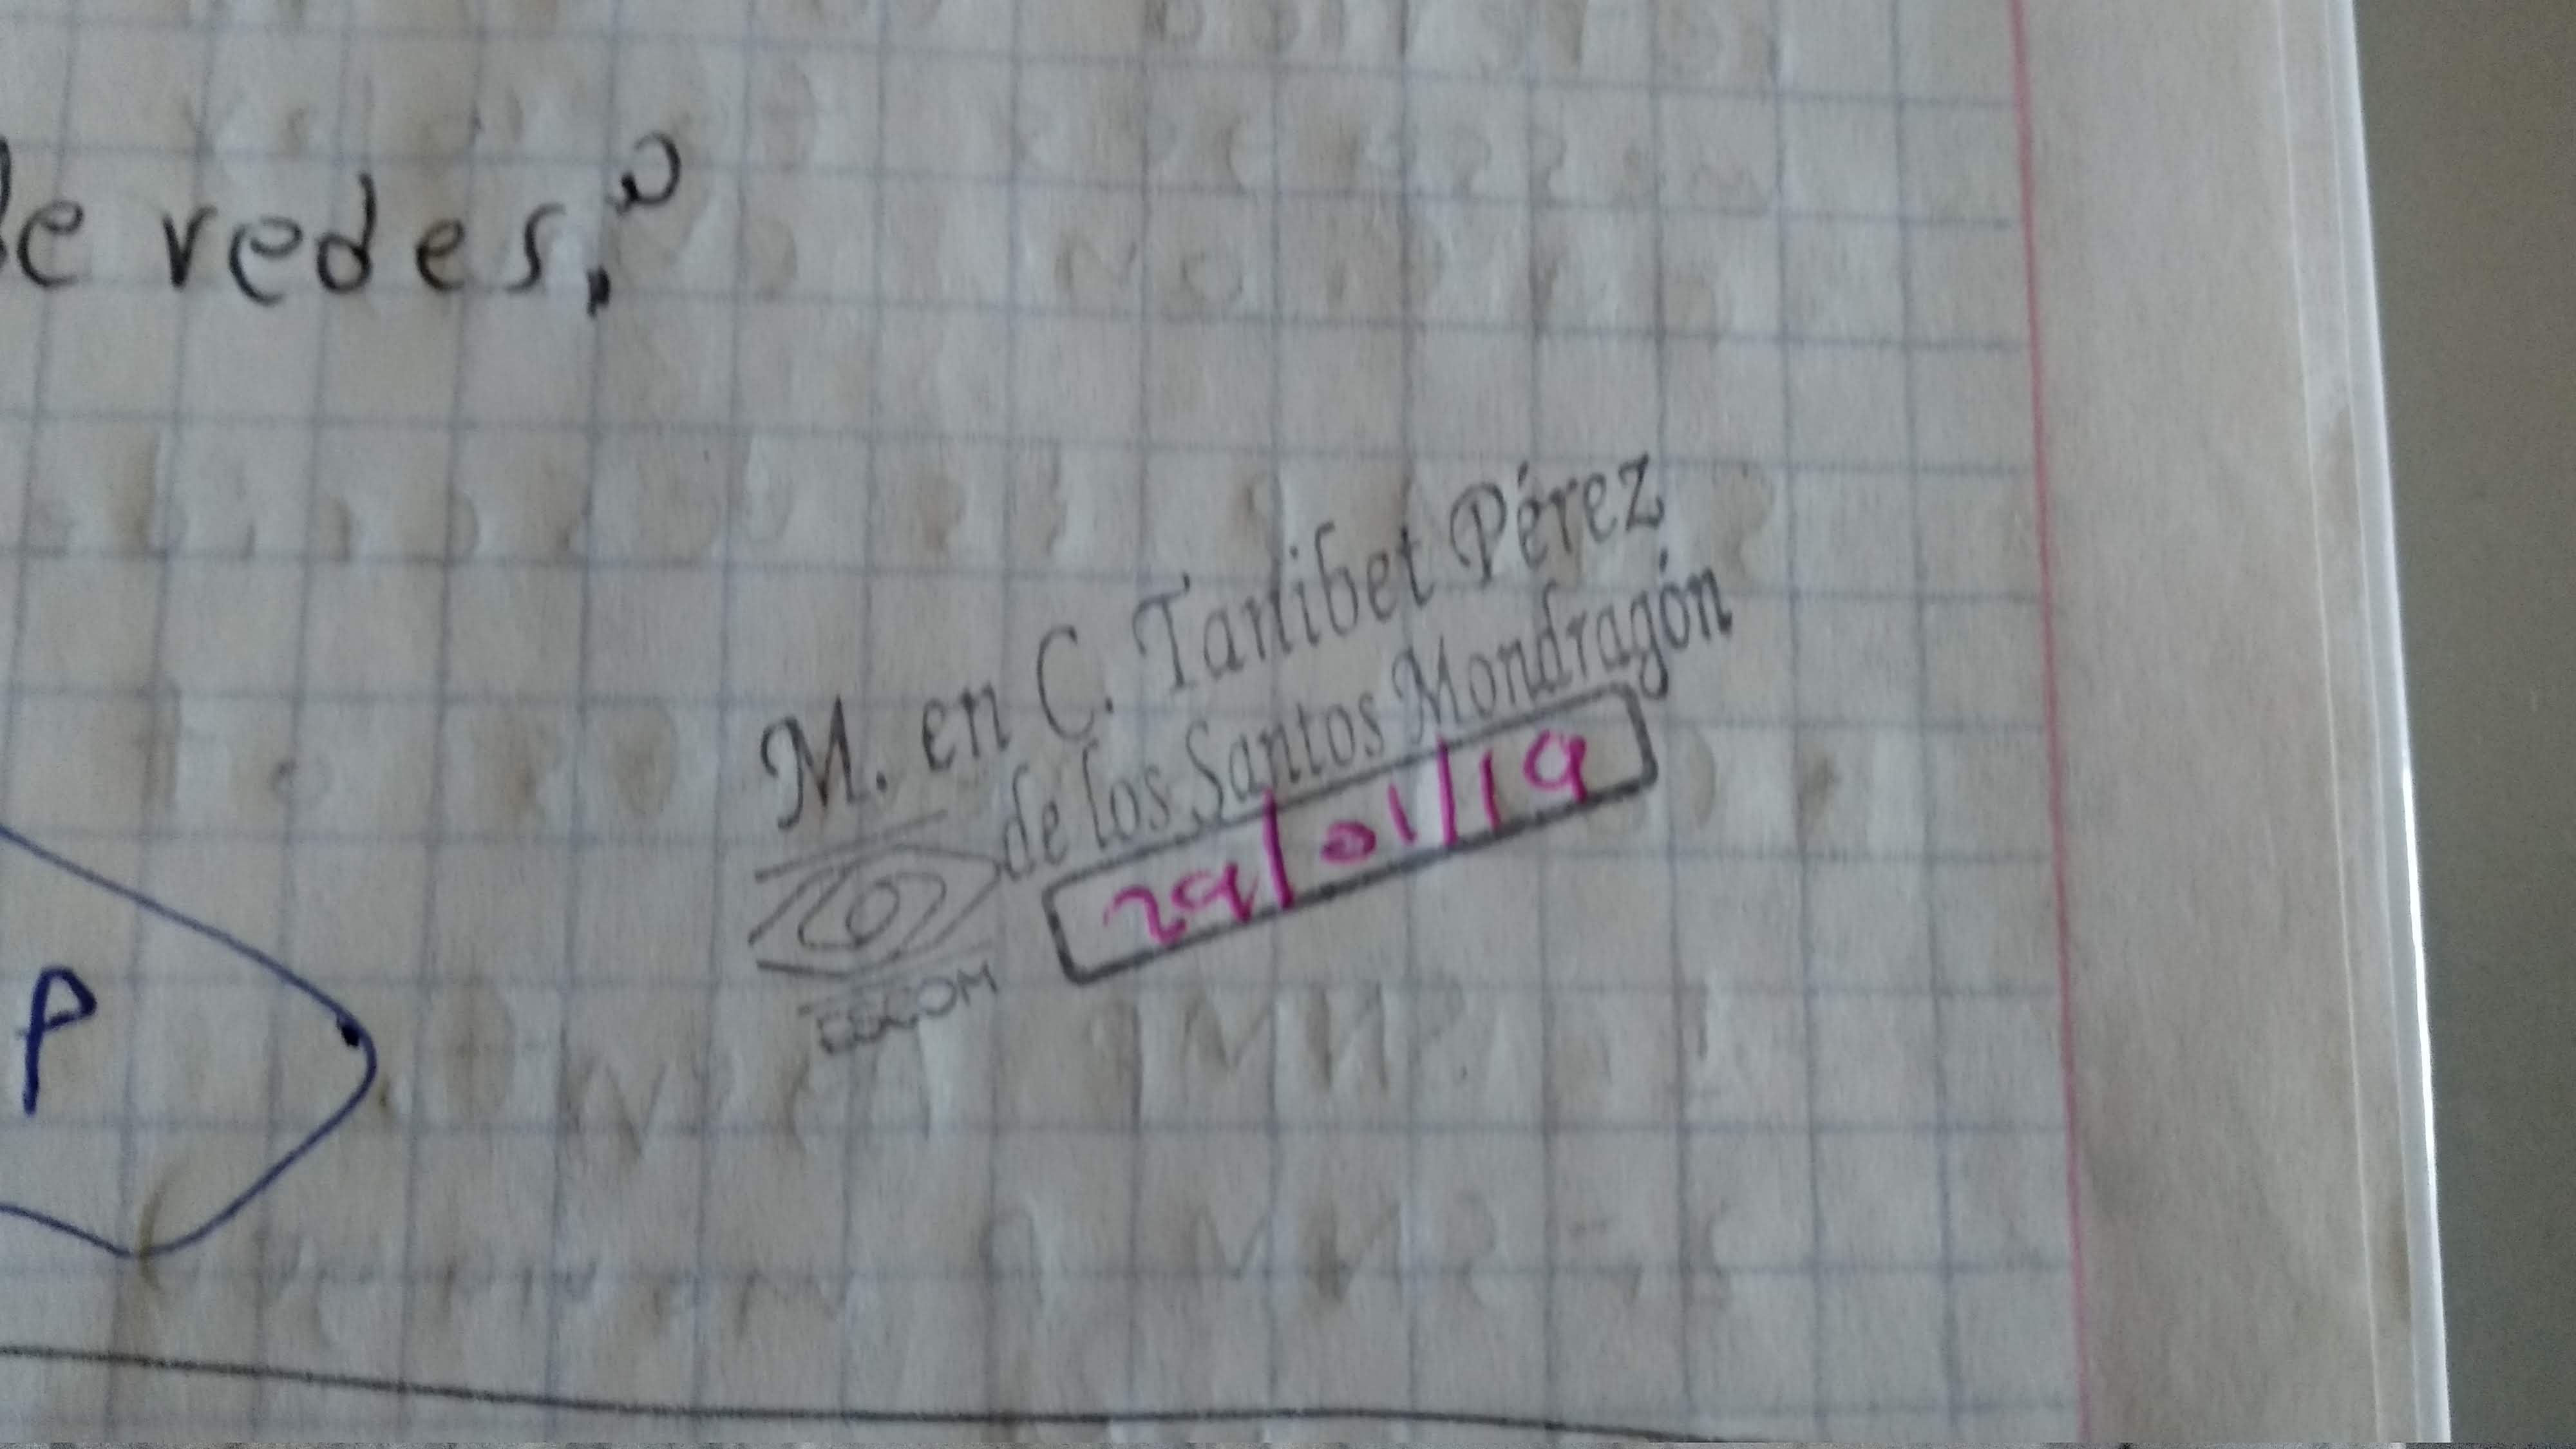 de redes."
M. en C. Tanibet Pérez
de los Santos Mondragón
29/01/19
ESCOM
P